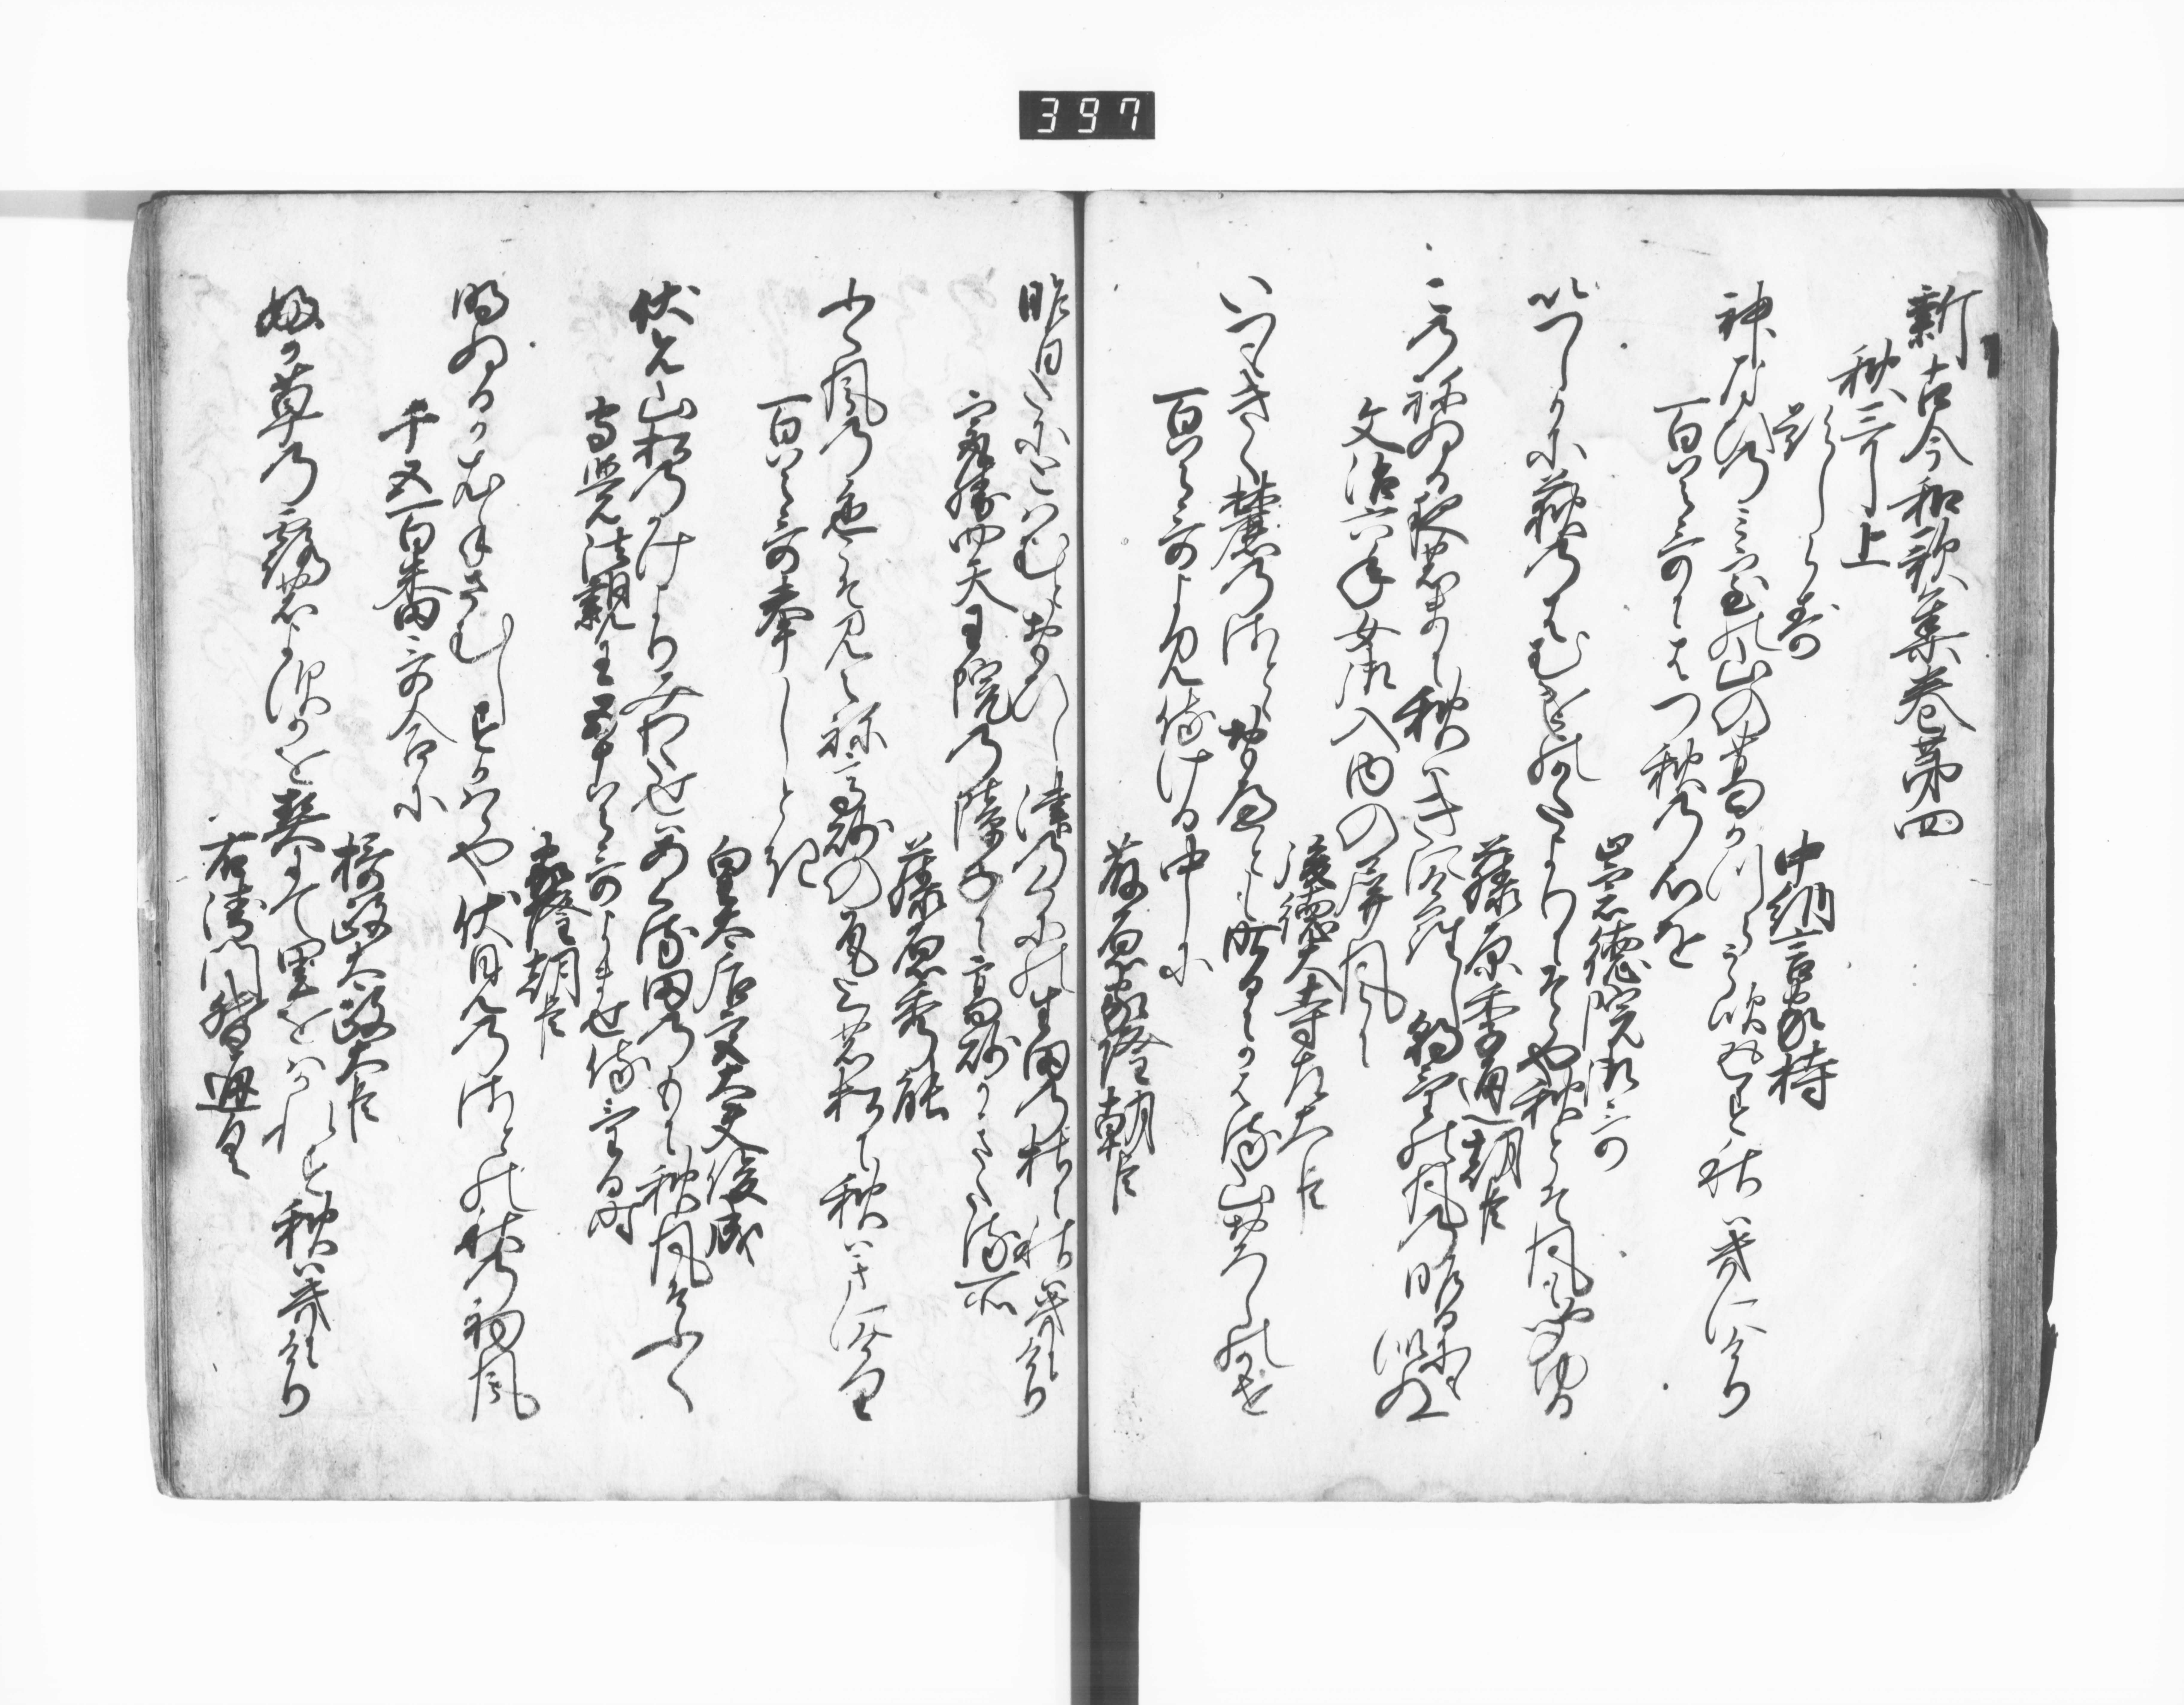 397
新古今和歌集巻第四
秋哥上
題しらす
中納言家持
神なひのみむろの山の葛かつらうら吹かへす秋は来にけり
百首哥にはつ秋の心を
崇徳院御哥
いつしかと荻の葉むけのかたよりにそゝや秋とそ風も聞ゆる
藤原季通朝臣
この寝ぬる夜のまに秋はきにけらし朝けの風の昨日にもにぬ
文治六年女御入内の屏風に
後徳大寺左大臣
いつもきく麓の里とおもへとも昨日にかはる山おろしの風
百首哥よみ侍ける中に
藤原家隆朝臣
昨日たにとはむとおもひし津の国の生田の杜に秋は来にけり
最勝四天王院の障子に高砂かきたる所
藤原秀能
ふく風の色こそ見えね高砂の尾上の松に秋はきにけり
百首哥奉しとき
皇太后宮大夫俊成
伏見山松のかけより見わたせはあくる田のもに秋風そふく
守覚法親王五十首哥よませ侍ける時
家隆朝臣
明ぬるか衣手さむしすかはらや伏見の里の秋の初風
千五百番哥合に
摂政太政大臣
ふか草の露のよすかを契にて里をはかれす秋は来にけり
右衛門督通具